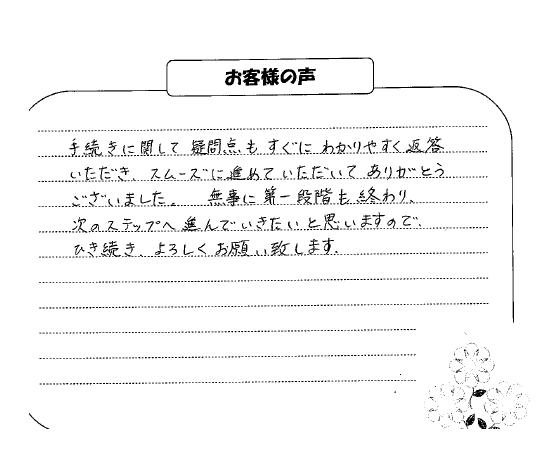 お客様の声
手続きに関して疑問点もすぐにわかりやすく返答
いただき、スムーズに進めていただいてありがとう
ございました。 無事に第一段階も終わり、
次のステップへ進んでいきたいと思いますので、
ひき続き、よろしくお願い致します。